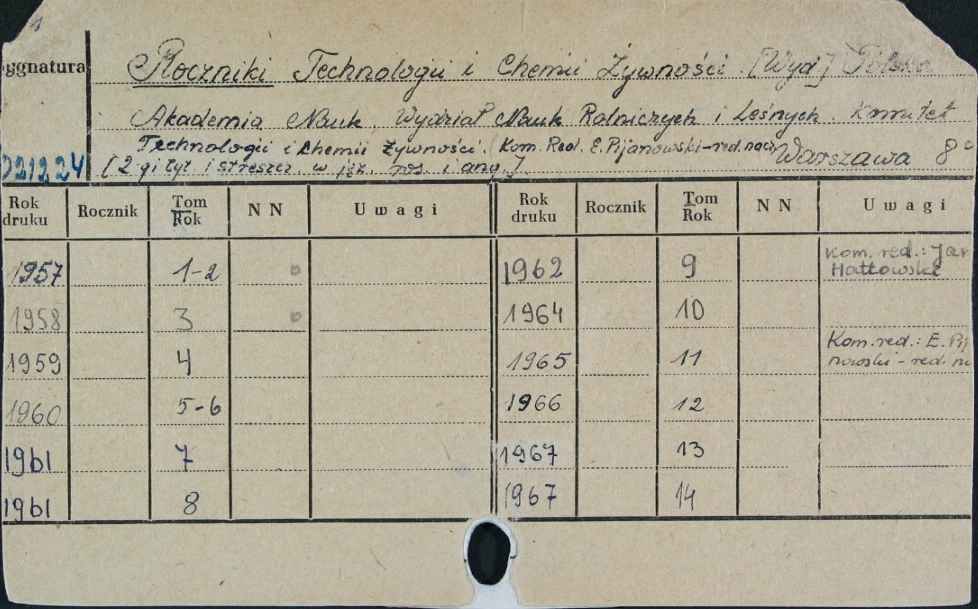 1
ygnatura
Roczniki Technologii i Chemii Żywności. [Wyd] Polska
Akademia Nauk. Wydział Nauk Rolniczych i Leśnych. Komitet
Technologii i Chemii Żywności. (Kom. Red. E. Pijanowski-red.nacz Warszawa 8°
021224 [2-gi tyt. i streszcz. w jęz. ros. i ang.]
Rok druku Rocznik Tom Rok N N Uwagi Rok druku Rocznik Tom Rok N N Uwagi
1957 1-2 1962 9 Kom. red.: Jan
Hattowski
1958 3 1964 10
1959 4 1965 11 Kom. red.: E. Pij
nowski - red. na
1960 5-6 1966 12
1961 7 1967 13
1961 8 1967 14